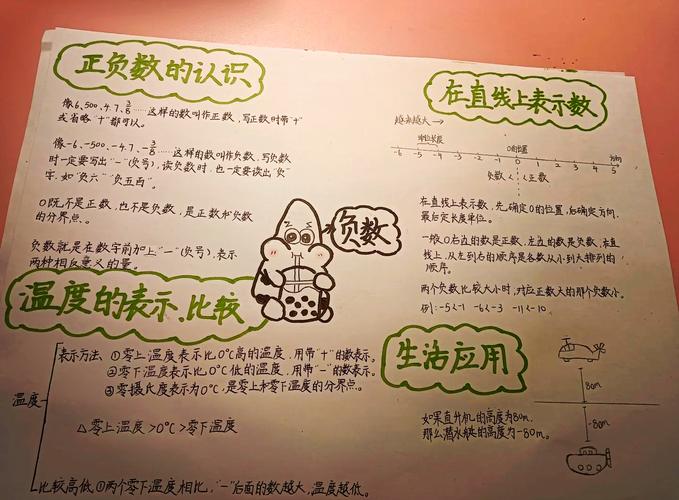 正负数的认识
像6、500、4.7、3/8……这样的数叫作正数，写正数时带"+"
或省略"+"都可以。
像-6、-500、-4.7、-3/8……这样的数叫作负数，写负数
时一定要写出"一"(负号)，读负数时，也一定要读出"负"
字，如"负六""负五百"。
0既不是正数，也不是负数，是正数和负数
的分界点。
负数就是在数字前加上"一"(负号)，表示
两种相反意义的量。
负数
温度的表示、比较
温度
表示方法、①零上温度表示比0℃高的温度，用带"+"的数表示。
②零下温度表示比0℃低的温度，用带"-"的数表示。
③零摄氏度表示为0℃，是零上和零下温度的分界点。
△零上温度>0℃>零下温度
比较高低、①两个零下温度相比，"-"后面的数越大，温度越低。
在直线上表示数
越来越大→
单位长度
0的位置
-6 -5 -4 -3 -2 -1 0 1 2 3 4 5
负数 正数
在直线上表示数，先确定0的位置，后确定方向，
最后定长度单位。
一般0右边的数是正数，左边的数是负数，在直
线上，从左到右的顺序是各数从小到大排列的
顺序。
两个负数比较大小时，对应正数大的那个负数小。
例：-5<-1 -6<-3 -11<-10.
生活应用
如果直升机的高度为80m，
那么潜水艇的高度为-80m。
80m
-80m